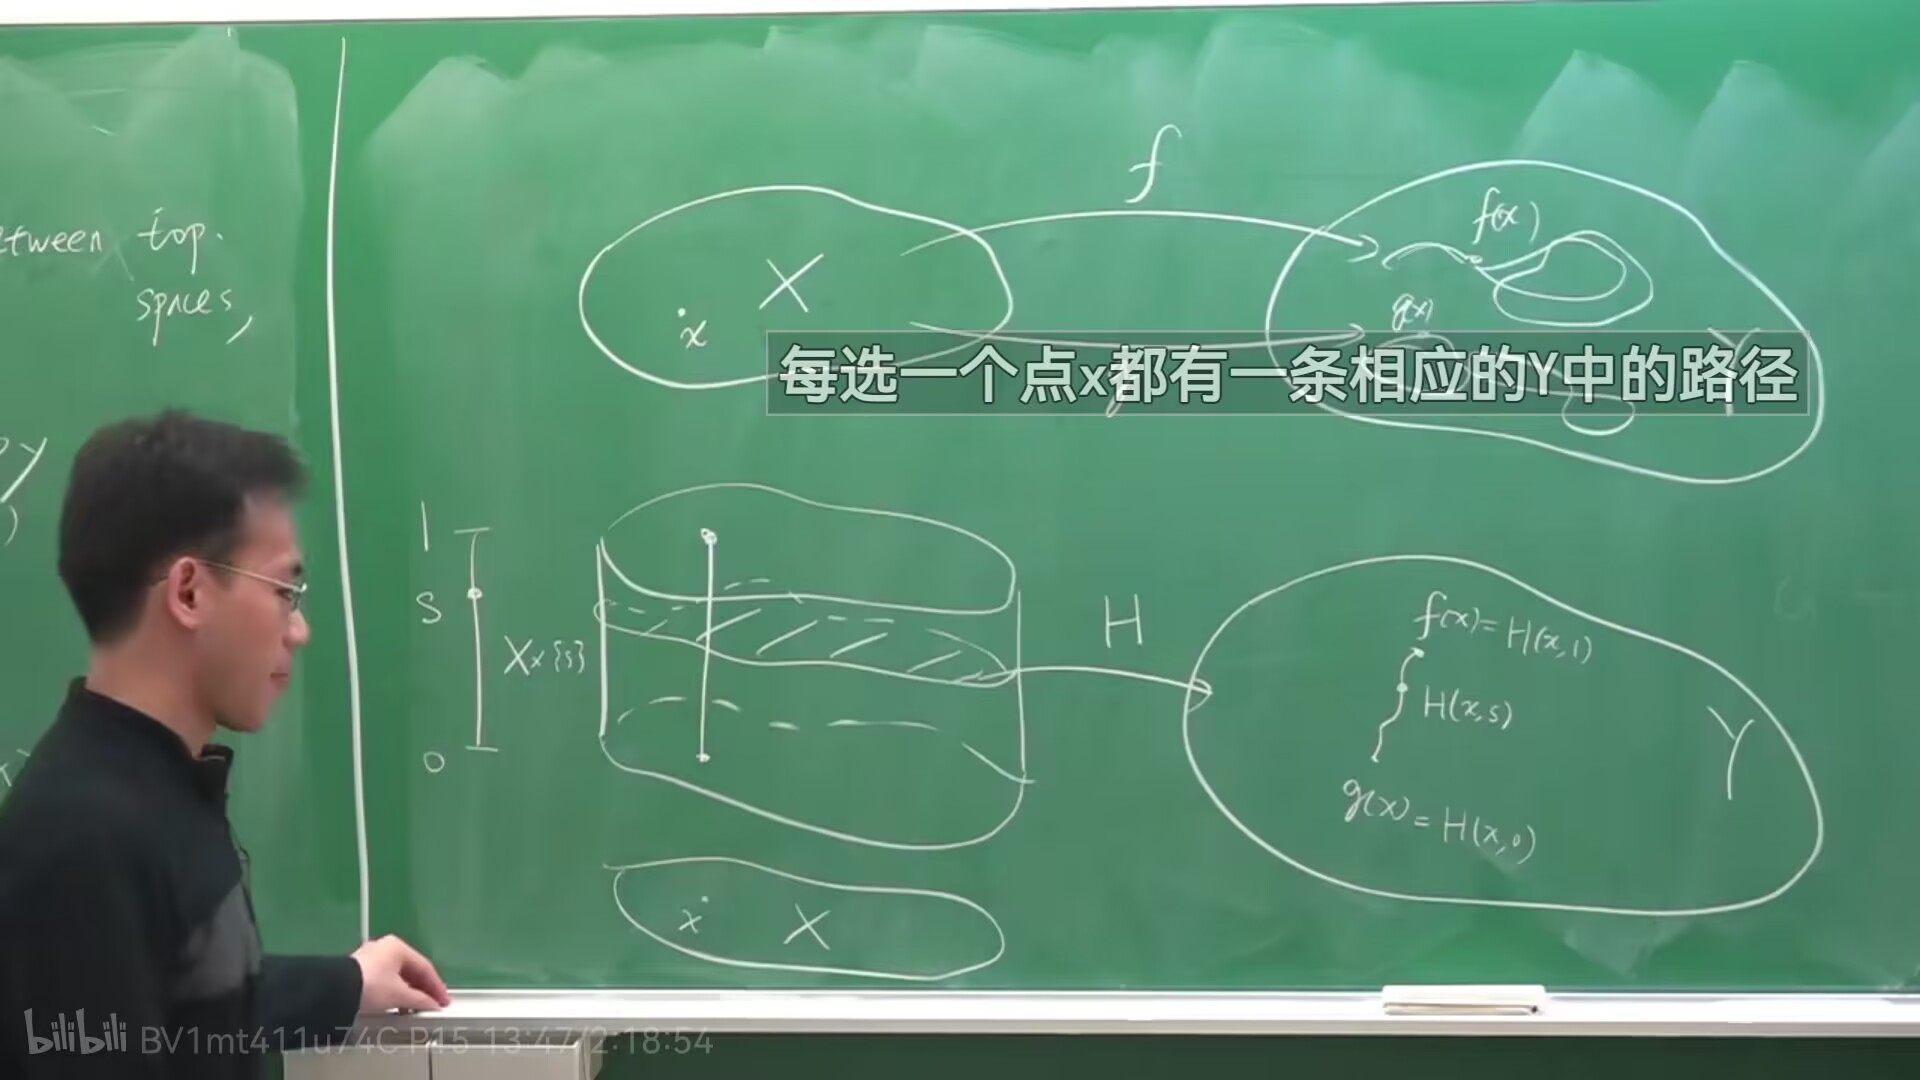 etween top.
spaces,
y
)
f
X
x
f(x)
g(x)
Y
每选一个点x都有一条相应的Y中的路径
1
s
0
X×{s}
H
f(x)=H(x,1)
H(x,s)
g(x)=H(x,0)
Y
x X
bilibili BV1mt411u74C P15 13:47/2:18:54